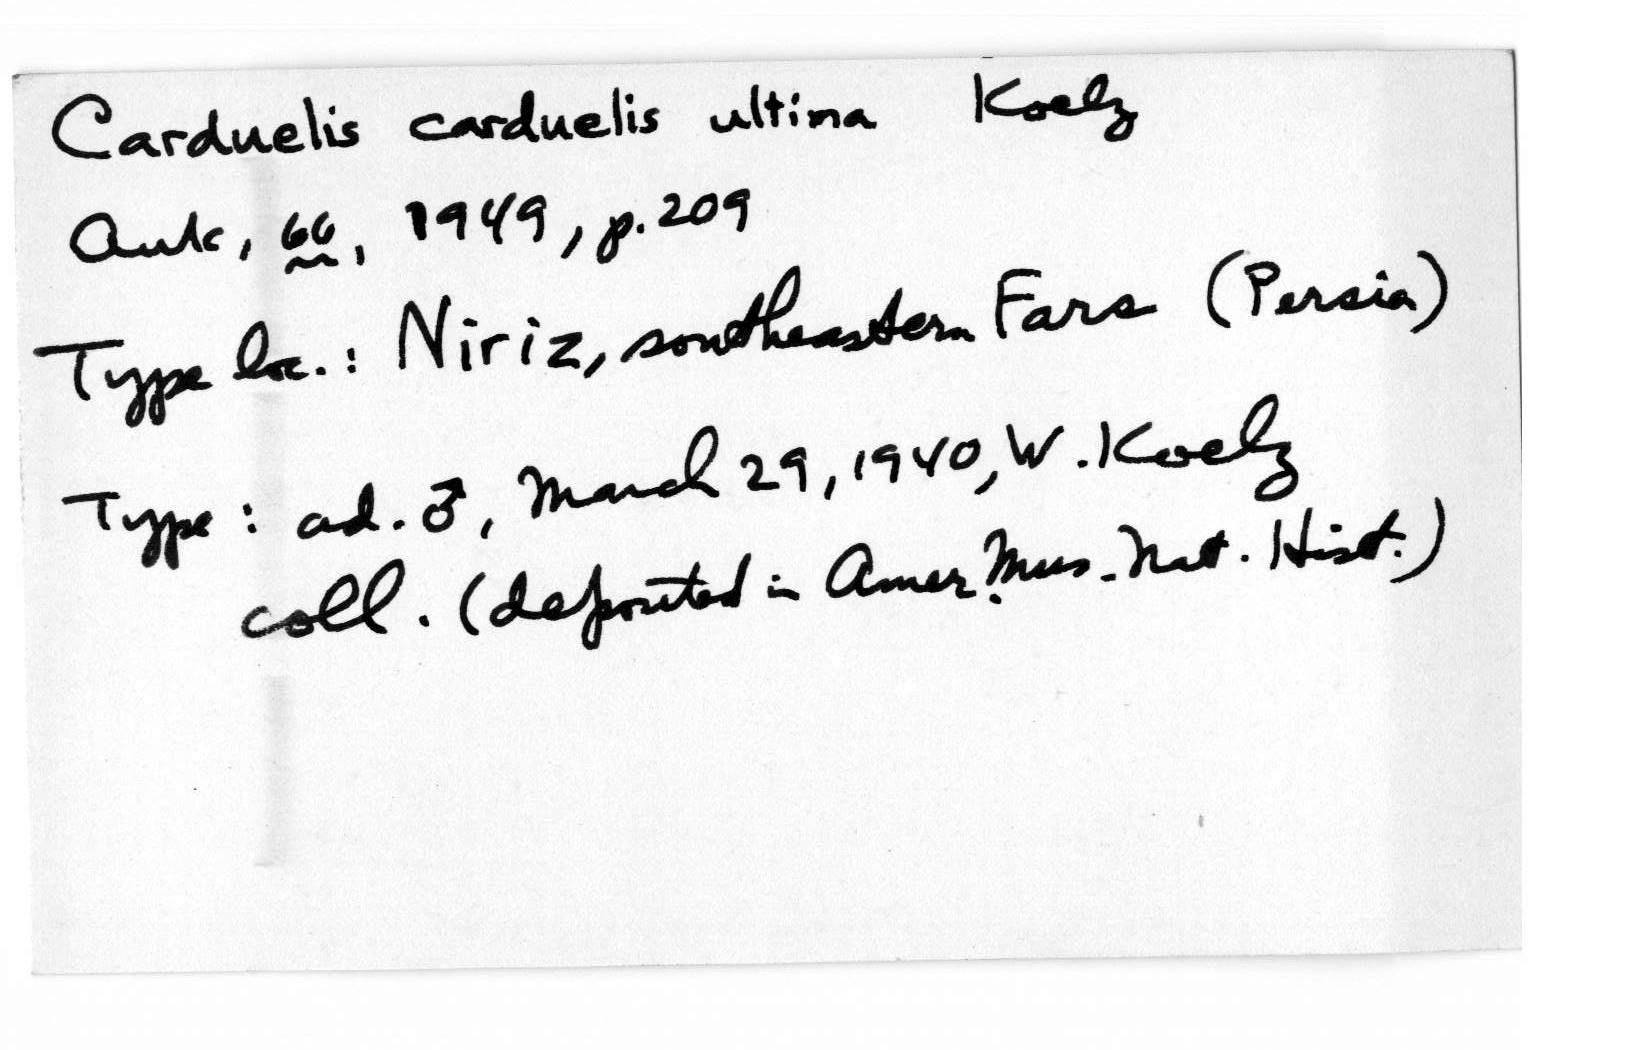 Carduelis carduelis ultima Koelz
Auk, 66, 1949, p. 209
Type loc.: Niriz, southeastern Fars (Persia)
Type: ad. ♂, March 29, 1940, W. Koelz
coll. (deposited in Amer. Mus. Nat. Hist.)